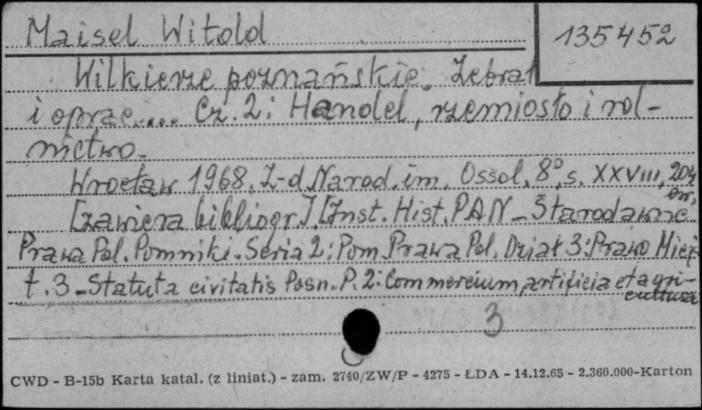 Maisel Witold
135452
Wilkierze poznańskie. Zebrał
i oprac.... Cz. 2: Handel, rzemiosło i rol-
nictwo.
Wrocław 1968. Z-d Narod. im. Ossol. 8°, s. XXVIII, 204
[zawiera bibliogr.]. [Inst. Hist. PAN - Starodawne
Prawa Pol. Pomniki. Seria 2: Pom. Prawa Pol. Dział 3: Prawo Miej.
t. 3 - Statuta civitatis Posn. P. 2: Commercium, artificia et agri-
cultura
3
CWD - B-15b Karta katal. (z liniat.) - zam. 2740/ZW/P - 4275 - ŁDA - 14.12.65 - 2.360.000-Karton